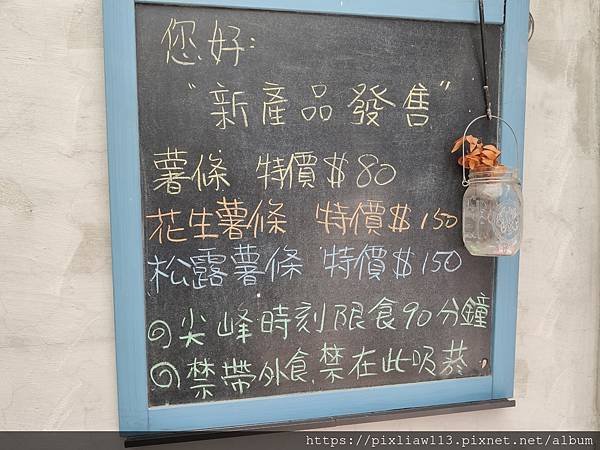 您好:
"新產品發售"
薯條 特價$80
花生薯條 特價$150
松露薯條 特價$150
◎尖峰時刻限食90分鐘
◎禁帶外食.禁在此吸菸
https://pixliaw113.pixnet.net/album